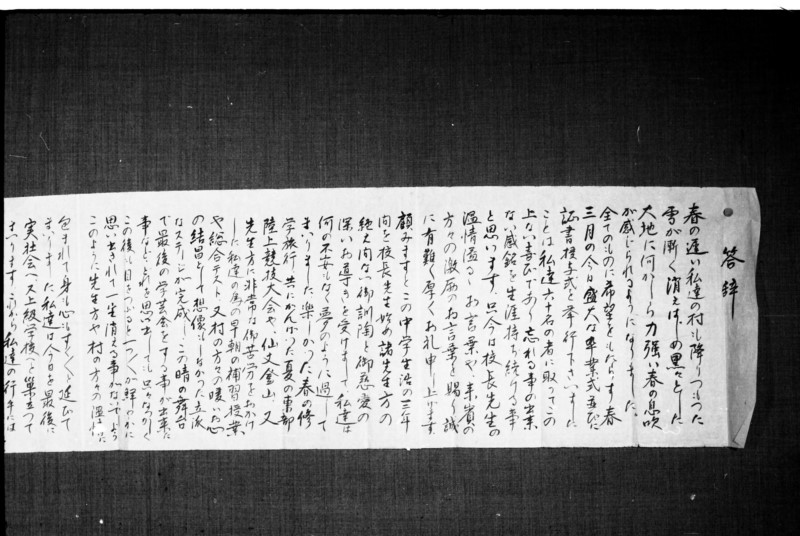 答辞
春の遅い私達の村も降りつもった
雪が漸く消えはじめ黒々とした
大地に何かしら力強い春の息吹
が感じられるようになりました。
全てのものに希望をもたらす春
三月の今日盛大な卒業式並びに
証書授与式を挙行下さいました
ことは私達六十名の者に取ってこの
上ない喜びであり忘れる事の出来
ない感銘を生涯持ち続ける事
と思います。只今は校長先生の
温情溢るゝお言葉や、来賓の
方々の激励のお言葉を賜り誠
に有難く厚くお礼申し上げます。
顧みますとこの中学生活の三年
間を校長先生始め諸先生方の
絶え間ない御訓陶と御慈愛の
深いお導きを受けまして私達は
何の不安もなく夢のように過して
まいりました。楽しかった春の修
学旅行、共にがんばった夏の東部
陸上競技大会や、仙丈登山、又
先生方に非常な御苦労をおかけ
した私達の為の早朝の補習授業
や総合テスト、又村の方々の暖い心
の結晶として想像もしなかった立派
なステージが完成しこの晴の舞台
で最後の学芸会をする事が出来た
事など、どれを思い出しても只々なつかしく
この後も目をつぶると一つ一つが鮮やかに
思い出されて一生消える事がないでしょう
このように先生方や村の方々の温情に
包まれて身も心もすくすくと延びて
まいりました私達は今日を最後に
実社会へ又上級学校へと巣立って
まいります。これから私達の行手には